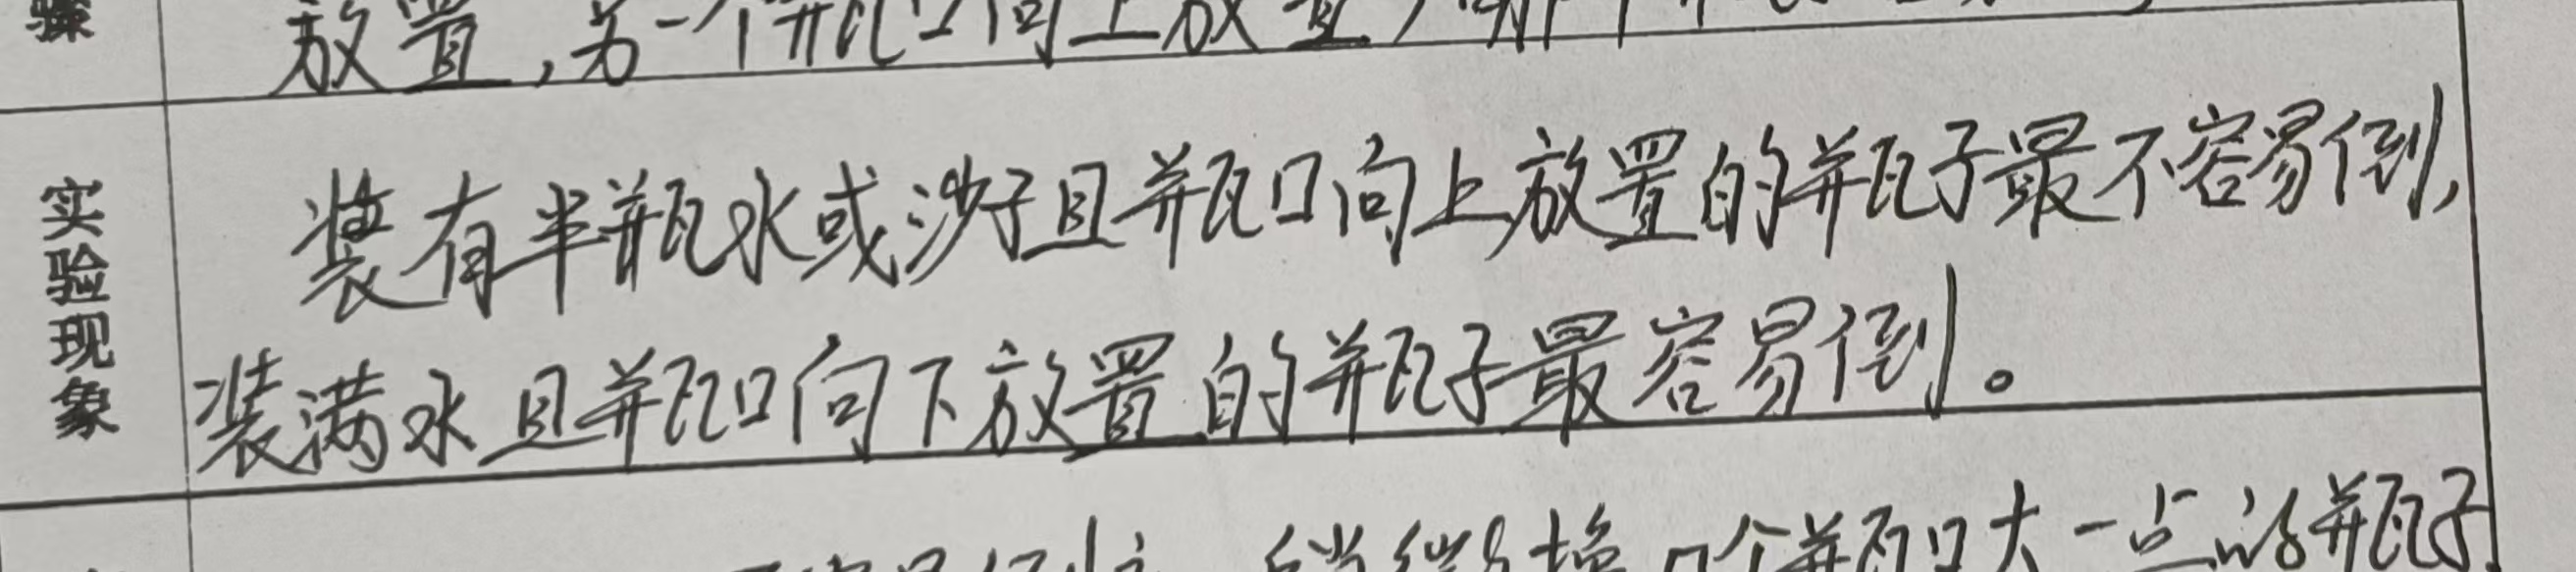 骤
放置，另一个瓶口向上放置，
实验现象
装有半瓶水或沙子且瓶口向上放置的瓶子最不容易倒，
装满水且瓶口向下放置的瓶子最容易倒。
个瓶口大一点的瓶子